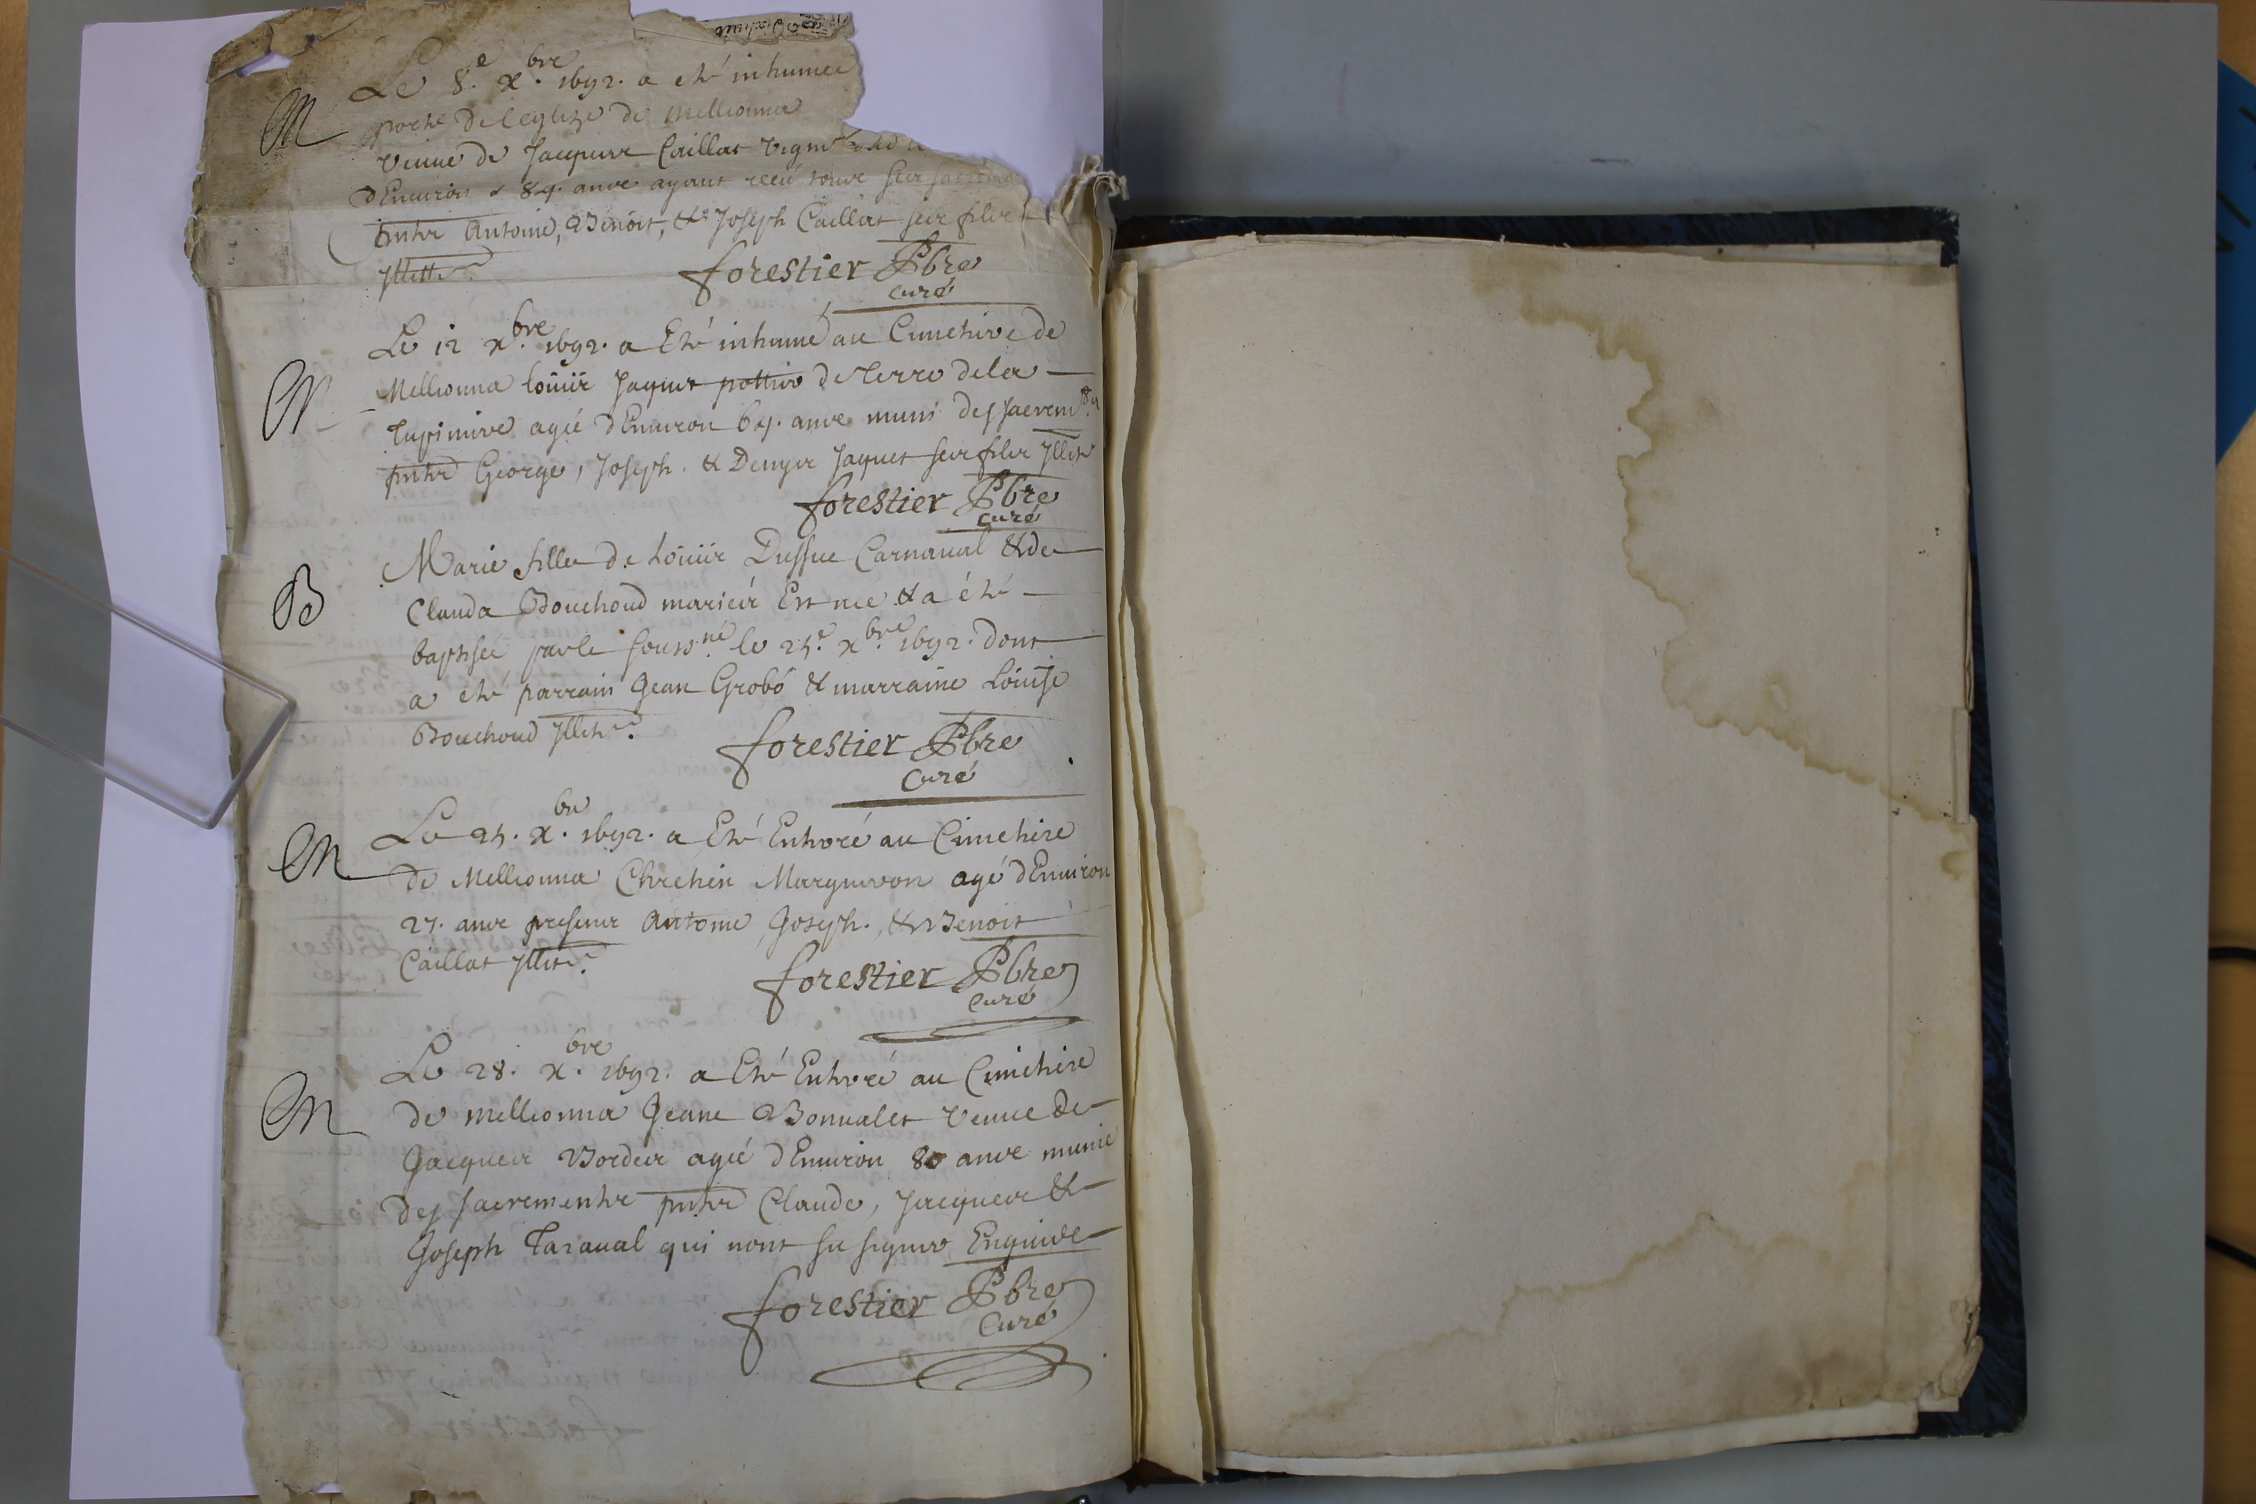 Le 8.e xbre. 1692. a eté inhumee
M
porche de l'eglize de Mellionna
veuve de Jacques Caillat vign
d'Environ 84. ans ayant receu tous ses sacrem
pntz Antoine, Benoit, & Joseph Caillat ses fils
Jllitt.
forestier Pbre
curé
Le 12 xbre. 1692. a Eté inhumé au Cimetire de
M
Mellionna loüis Jaquet pottier de terre de la
Tupinire agé d'Environ 64. ans muni des sacremts
pntz George, Joseph. & Denys Jaquet ses fils Jllit
forestier Pbre
curé
Marie fille de Loüis Dussuc Carnaval & de
B
Clauda Bouchoud mariés Est née & a été
baptisée par le sousné. le 25.e xbre. 1692. dont
a eté parrain Jean Grobó & marraine Loüise
Bouchoud Jllit.
forestier Pbre
Curé
Le 25. xbre. 1692. a Eté Enteré au Cimetire
M
de Mellionna Chretien Margueron agé d'Environ
27. ans presens Antoine, Joseph. & Benoit
Caillat Jllit.
forestier Pbre
Curé
Le 28. xbre. 1692. a Eté Enteré au Cimetire
M
de Mellionna Jeane Bonvalet veuve de
Jacques Bordes agé d'Environ 80 ans munie
des sacrements pntz Claude, Jacques &
Joseph Taraval qui nont su signer Enquis
forestier Pbre
Curé